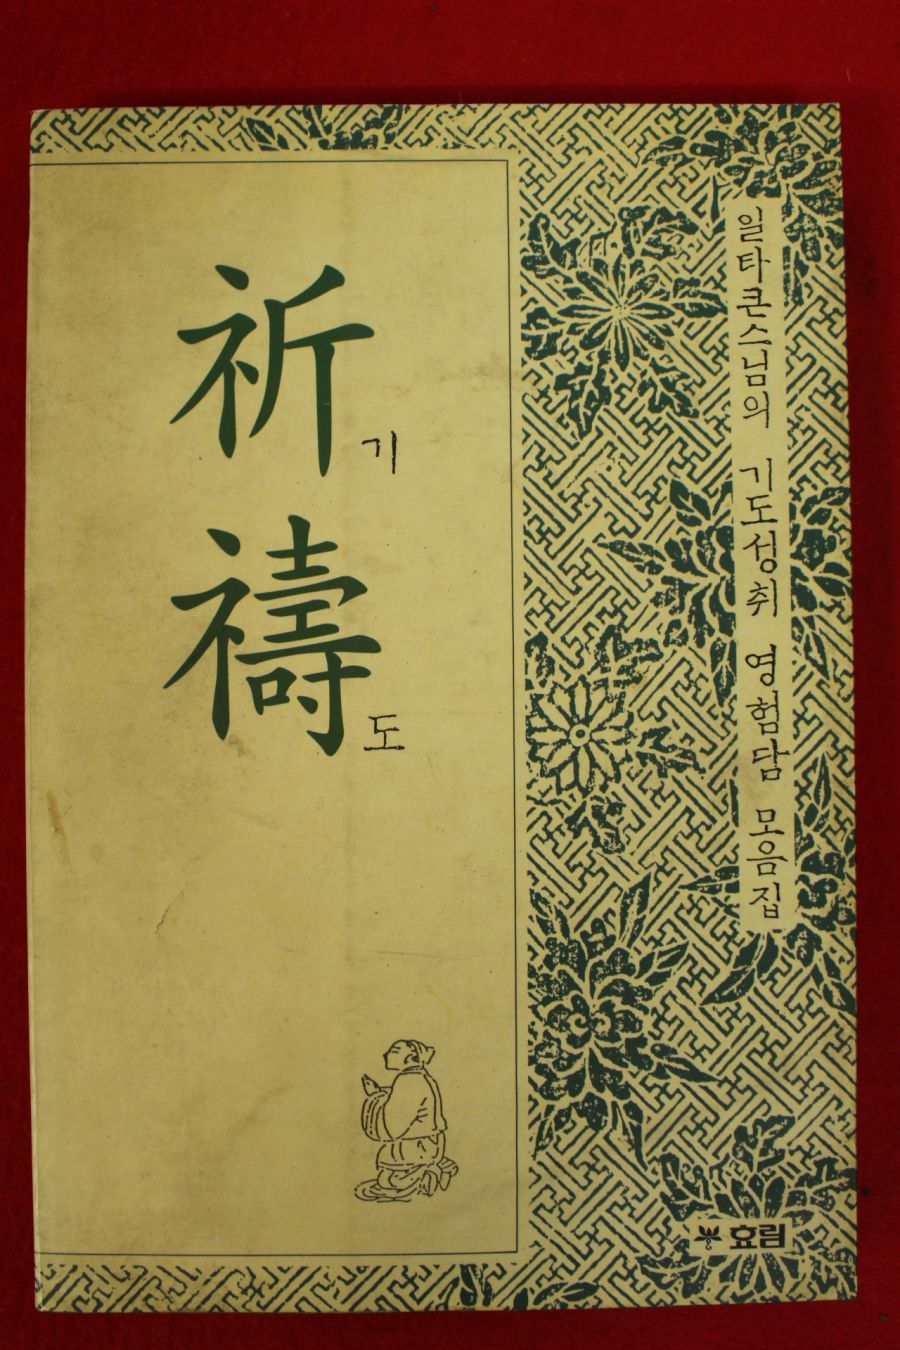 祈
기
禱
도
일타큰스님의 기도성취 영험담 모음집
효림